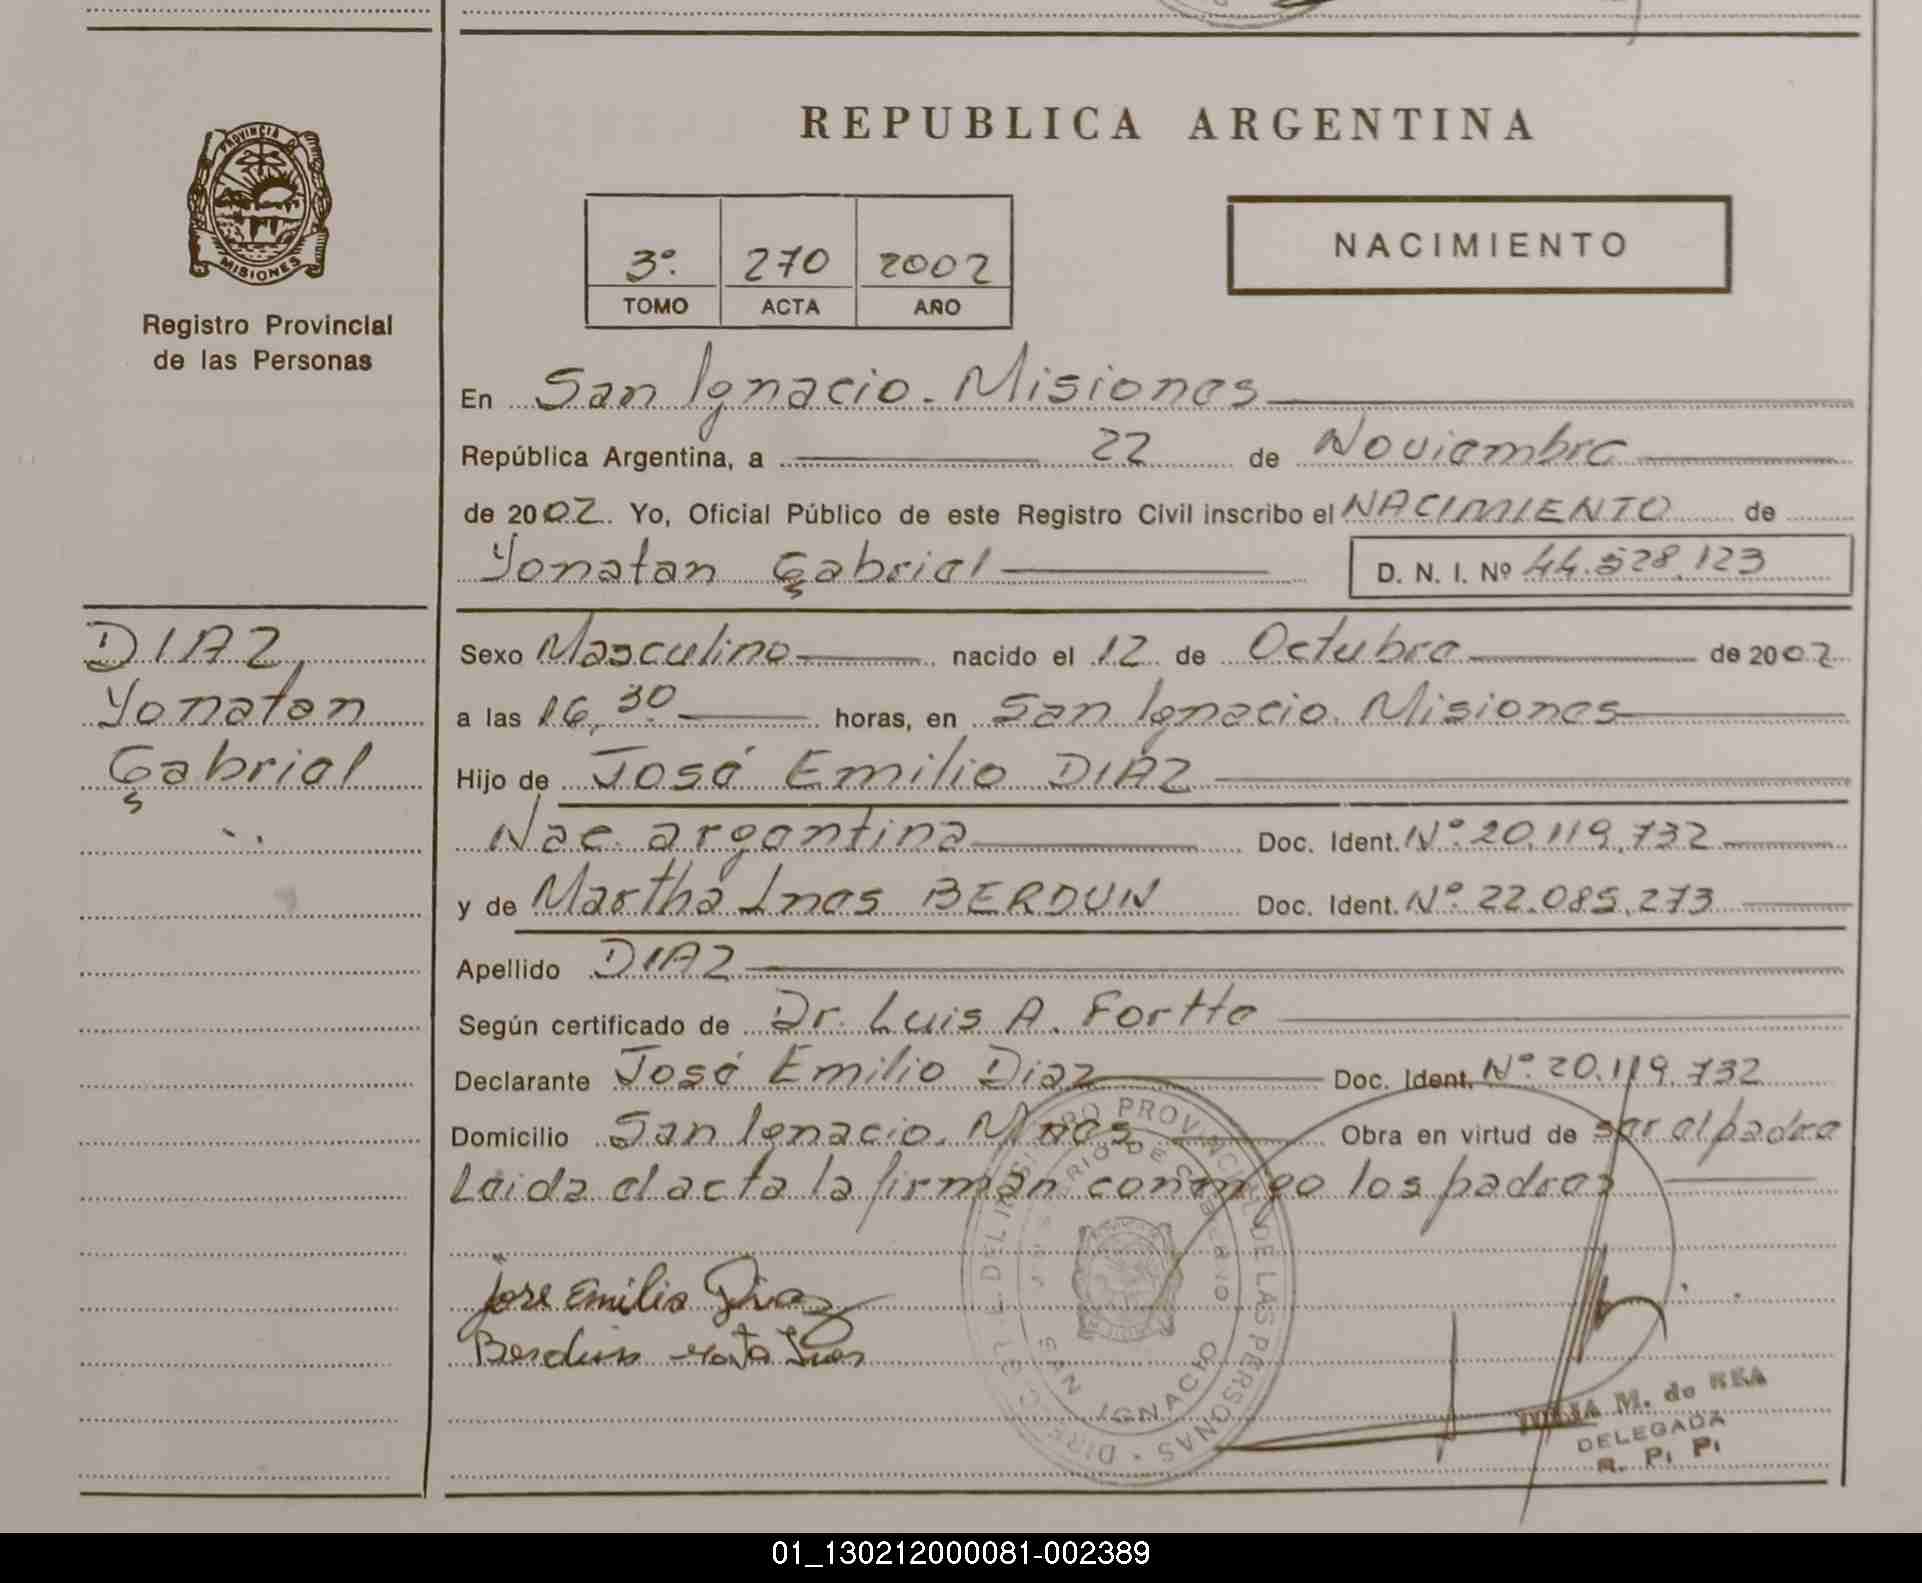 REPUBLICA ARGENTINA
PROVINCIA DE
MISIONES
Registro Provincial
de las Personas
3º. 270 2002
TOMO ACTA AÑO
NACIMIENTO
En San Ignacio. Misiones
República Argentina, a 22 de Noviembre
de 2002. Yo, Oficial Público de este Registro Civil inscribo el NACIMIENTO de
Yonatan Gabriel D. N. I. Nº 44.528.123
DIAZ,
Yonatan
Gabriel
Sexo Masculino nacido el 12 de Octubre de 2002
a las 16,30 horas, en San Ignacio. Misiones
Hijo de José Emilio DIAZ
Nac. argentina Doc. Ident. Nº 20.119.732
y de Martha Ines BERDUN Doc. Ident. Nº 22.085.273
Apellido DIAZ
Según certificado de Dr. Luis A. Fortte
Declarante José Emilio Diaz Doc. Ident. Nº 20.119.732
Domicilio San Ignacio. Mnes. Obra en virtud de ser el padre
Leida el acta la firman conmigo los padres
Jose Emilio Diaz
Berdun Marta Ines
DIRECCION GRAL. DEL REGISTRO PROVINCIAL DE LAS PERSONAS
MINISTERIO DE GOBIERNO
SAN IGNACIO
M. de REA
DELEGADA
R. P. P.
01_130212000081-002389